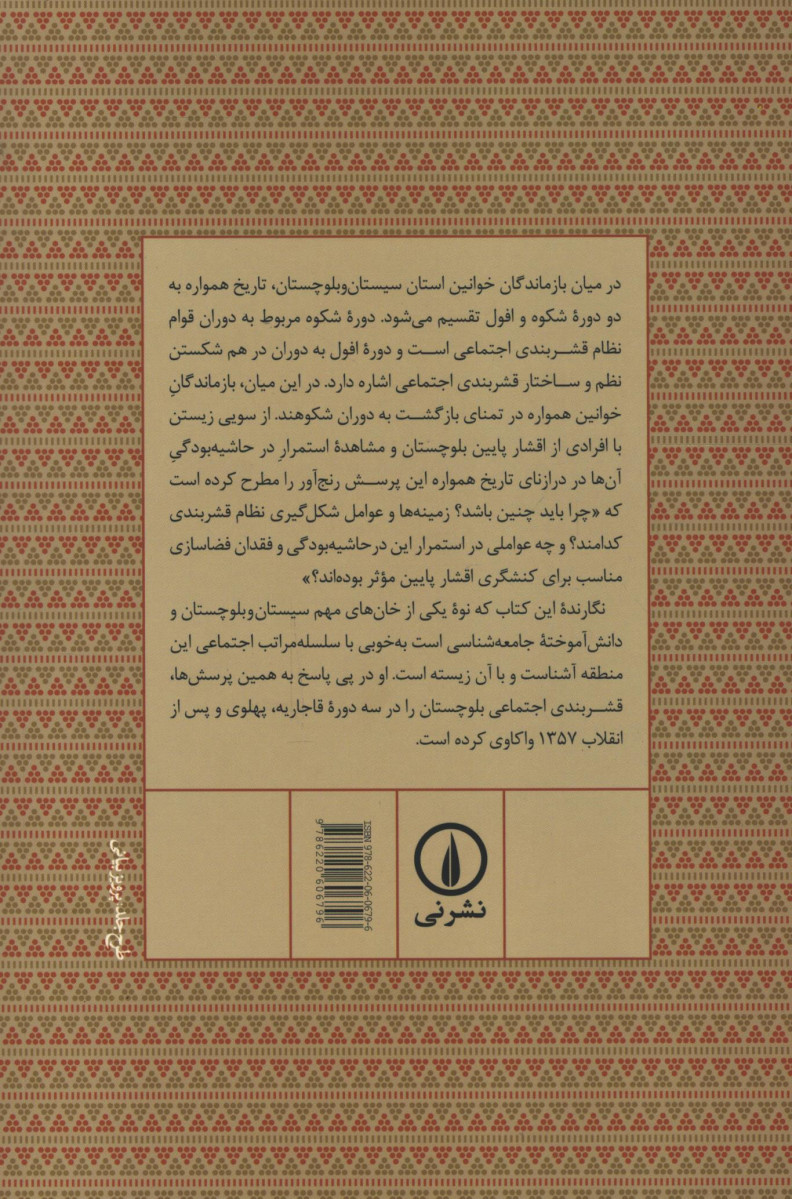 در میان بازماندگان خوانین استان سیستان‌وبلوچستان، تاریخ همواره به
دو دورهٔ شکوه و افول تقسیم می‌شود. دورهٔ شکوه مربوط به دوران قوام
نظام قشربندی اجتماعی است و دورهٔ افول به دوران در هم شکستن
نظم و ساختار قشربندی اجتماعی اشاره دارد. در این میان، بازماندگانِ
خوانین همواره در تمنای بازگشت به دوران شکوهند. از سویی زیستن
با افرادی از اقشار پایین بلوچستان و مشاهدهٔ استمرارِ در حاشیه‌بودگیِ
آن‌ها در درازنای تاریخ همواره این پرسش رنج‌آور را مطرح کرده است
که «چرا باید چنین باشد؟ زمینه‌ها و عوامل شکل‌گیری نظام قشربندی
کدامند؟ و چه عواملی در استمرار این درحاشیه‌بودگی و فقدان فضاسازی
مناسب برای کنشگری اقشار پایین مؤثر بوده‌اند؟»
نگارندهٔ این کتاب که نوهٔ یکی از خان‌های مهم سیستان‌وبلوچستان و
دانش‌آموختهٔ جامعه‌شناسی است به‌خوبی با سلسله‌مراتب اجتماعی این
منطقه آشناست و با آن زیسته است. او در پی پاسخ به همین پرسش‌ها،
قشربندی اجتماعی بلوچستان را در سه دورهٔ قاجاریه، پهلوی و پس از
انقلاب ۱۳۵۷ واکاوی کرده است.
نشرنی
ISBN 978-622-06-0679-6
9 786220 606796
طرح جلد: پرویز بیانی